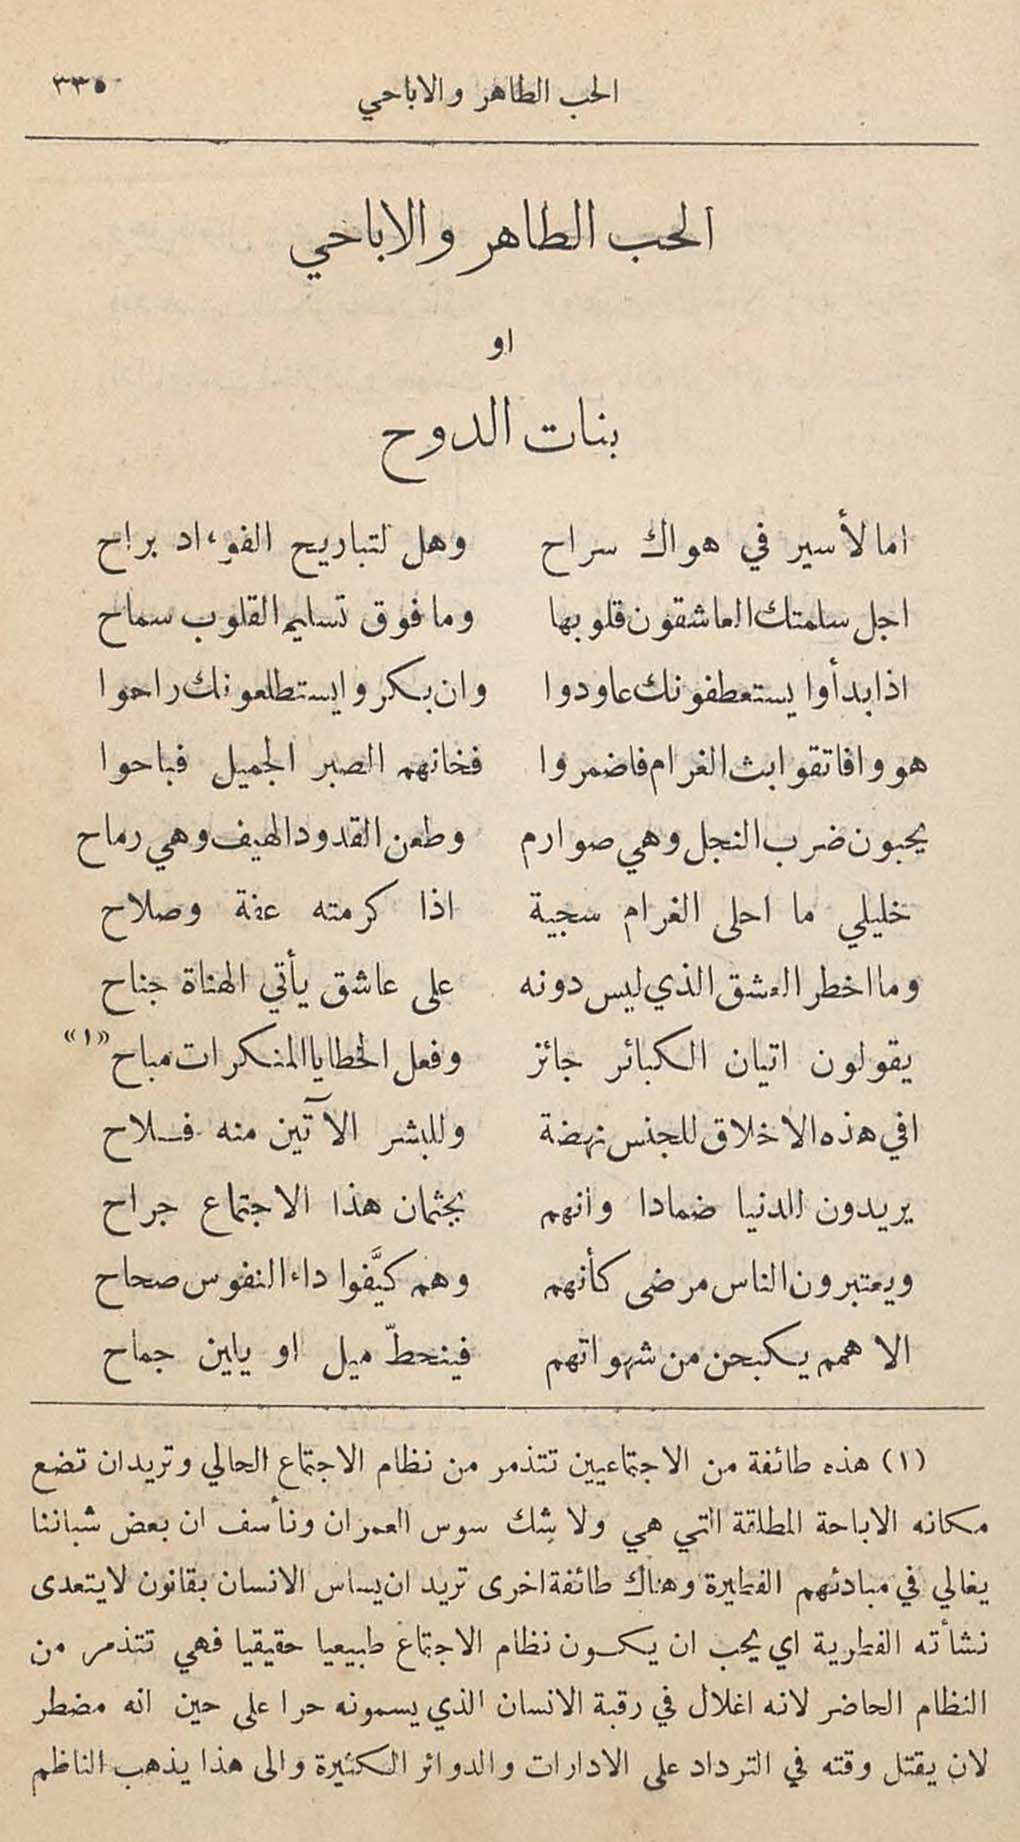 الحب الطاهر والاباحي ٣٣٥
الحب الطاهر والاباحي
او
بنات الدوح
اما لأسير في هواك سراح وهل لتباريح الفوءاد براح
اجل سلمتك العاشقون قلوبها وما فوق تسليم القلوب سماح
اذا بدأوا يستعطفونك عاودوا وان بكروا يستطلعونك راحوا
هووا فاتقوا بث الغرام فاضمروا فخانهم الصبر الجميل فباحوا
يحبون ضرب النجل وهي صوارم وطعن القدود الهيف وهي رماح
خليلي ما احلى الغرام سجية اذا كرمته عفة وصلاح
وما اخطر العشق الذي ليس دونه على عاشق يأتي الهناة جناح
يقولون اتيان الكبائر جائز وفعل الخطايا المنكرات مباح «١»
افي هذه الاخلاق للجنس نهضة وللبشر الآتين منه فلاح
يريدون للدنيا ضمادا وانهم بجثمان هذا الاجتماع جراح
ويعتبرون الناس مرضى كأنهم وهم كيَّفوا داء النفوس صحاح
الا همم يكبحن من شهواتهم فينحطّ ميل او يلين جماح
(١) هذه طائفة من الاجتماعيين تتذمر من نظام الاجتماع الحالي وتريدان تضع
مكانه الاباحة المطلقة التي هي ولا شك سوس العمران ونأسف ان بعض شباننا
يغالي في مبادئهم الفطيرة وهناك طائفة اخرى تريد ان يساس الانسان بقانون لايتعدى
نشأته الفطرية اي يجب ان يكون نظام الاجتماع طبيعيا حقيقيا فهي تتذمر من
النظام الحاضر لانه اغلال في رقبة الانسان الذي يسمونه حرا على حين انه مضطر
لان يقتل وقته في الترداد على الادارات والدوائر الكثيرة والى هذا يذهب الناظم